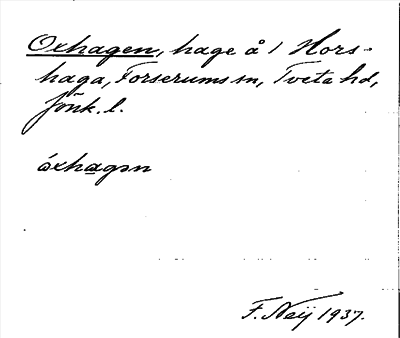 Oxhagen, hage å 1 Hors-
haga, Forserums sn, Tveta hd,
Jönk. l.
óxhagən
F. Neij 1937.